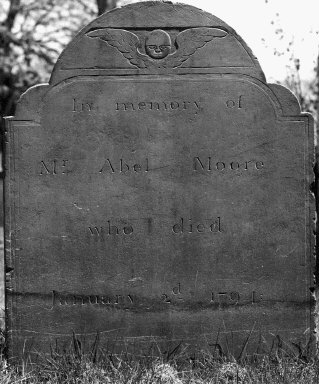 In memory of
Mr. Abel Moore
who died
January 2d 1794